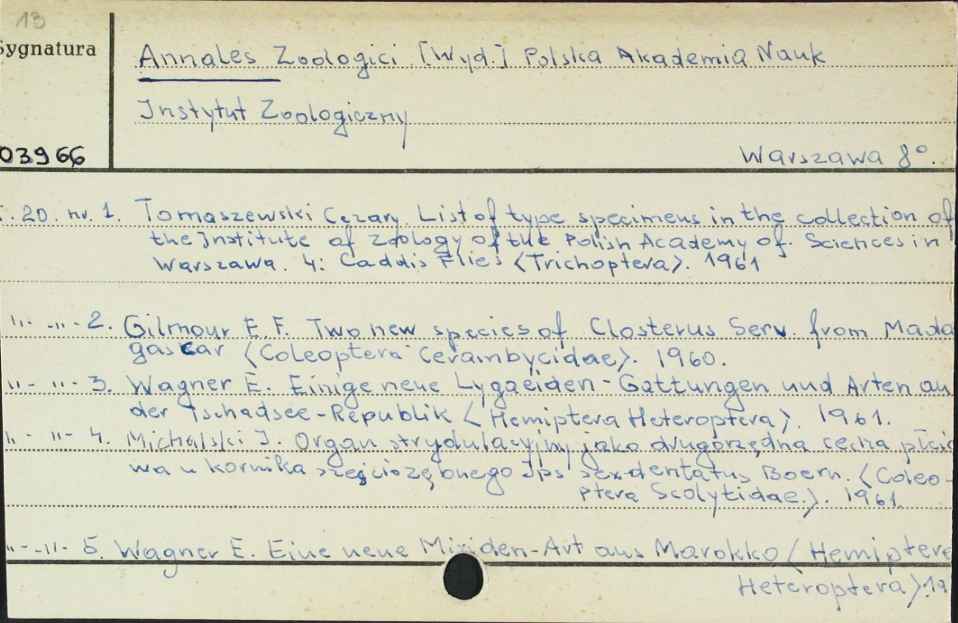 13
Sygnatura
Annales Zoologici. [Wyd.] Polska Akademia Nauk
Instytut Zoologiczny
03966
Warszawa 8°.
T. 20. nr. 1. Tomaszewski Cezary. List of type specimens in the collection of
the Institute of Zoology of the Polish Academy of Sciences in
Warszawa. 4: Caddis Flies <Trichoptera>. 1961
"- -"- 2. Gilmour E. F. Two new species of Closterus Serv. from Mada
gascar <Coleoptera Cerambycidae>. 1960.
"- "- 3. Wagner E. Einige neue Lygaeiden-Gattungen und Arten au
der Tschadsee-Republik <Hemiptera Heteroptera>. 1961.
"- "- 4. Michalski J. Organ strydulacyjny jako drugorzędna cecha płcio
wa u kornika sześciozębnego Ips sexdentatus Boern. <Coleo-
ptera Scolytidae.>. 1961.
"- -"- 5. Wagner E. Eine neue Miriden-Art aus Marokko <Hemiptera
Heteroptera>. 19